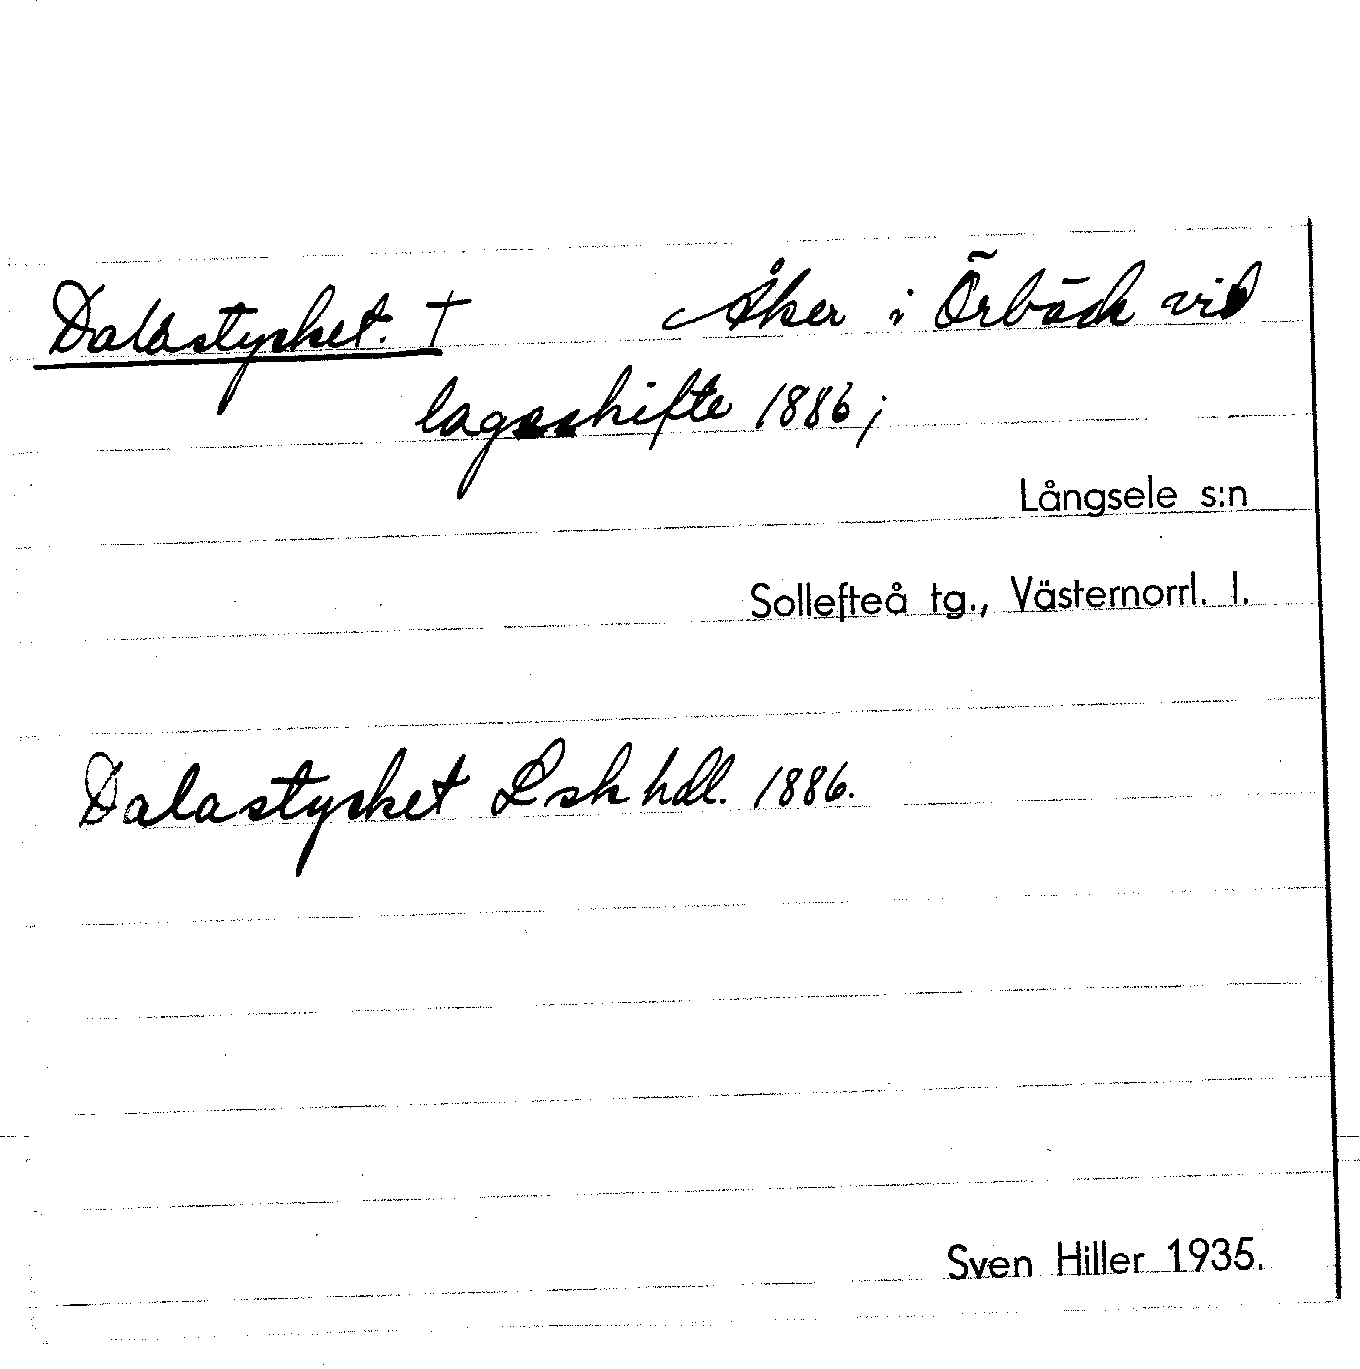 Dalastycket. †
Åker i Örbäck vid
lagaskifte 1886;
Långsele s:n
Sollefteå tg., Västernorrl. l.
Dalastycket Lskhdl. 1886.
Sven Hiller 1935.